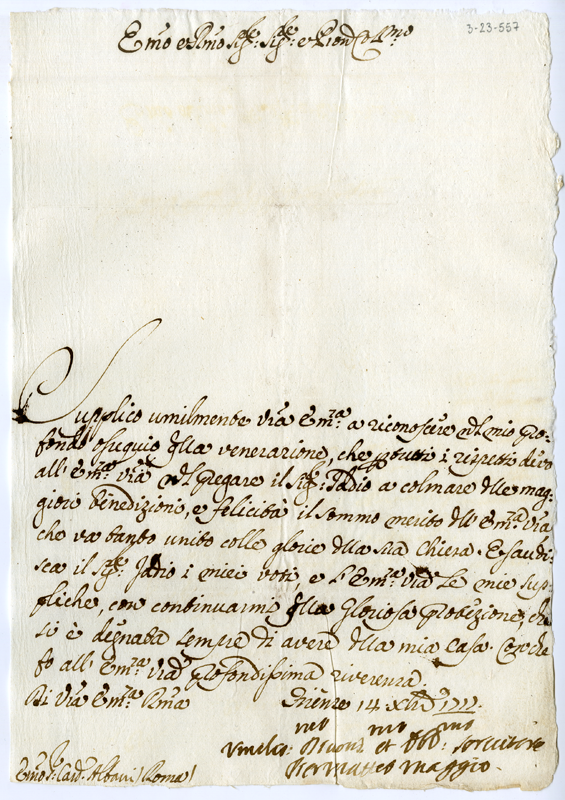 3-23-557
Emo e Rmo Sigre: Sigre: e Pron Colmo
Supplico umilmente Vra Emza a riconoscere nel mio pro-
fondo osequio qlla venerazione, che p tutti i rispetti devo
all' Emza Vra nel pregare il Sigre: Iddio a colmare delle mag-
giori benedizioni, e felicità il sommo merito dell' Emza Vra
che va tanto unito colle glorie della sua Chiesa. Esaudi-
sca il Sigre: Iddio i miei voti, e l' Emza Vra le mie sup-
pliche, con continuarmi qlla gloriosa protezione, che
si è degnata sempre di avere della mia Casa. Con che
fo all' Emza Vra profondissima riverenza.
Di Vra Emza Rma
Firenze 14 Xbre 1717.
Umilis: Devmo et Obb: Servitore
Pier Matteo Maggio.
Emo Sr Card. Albani (Roma)